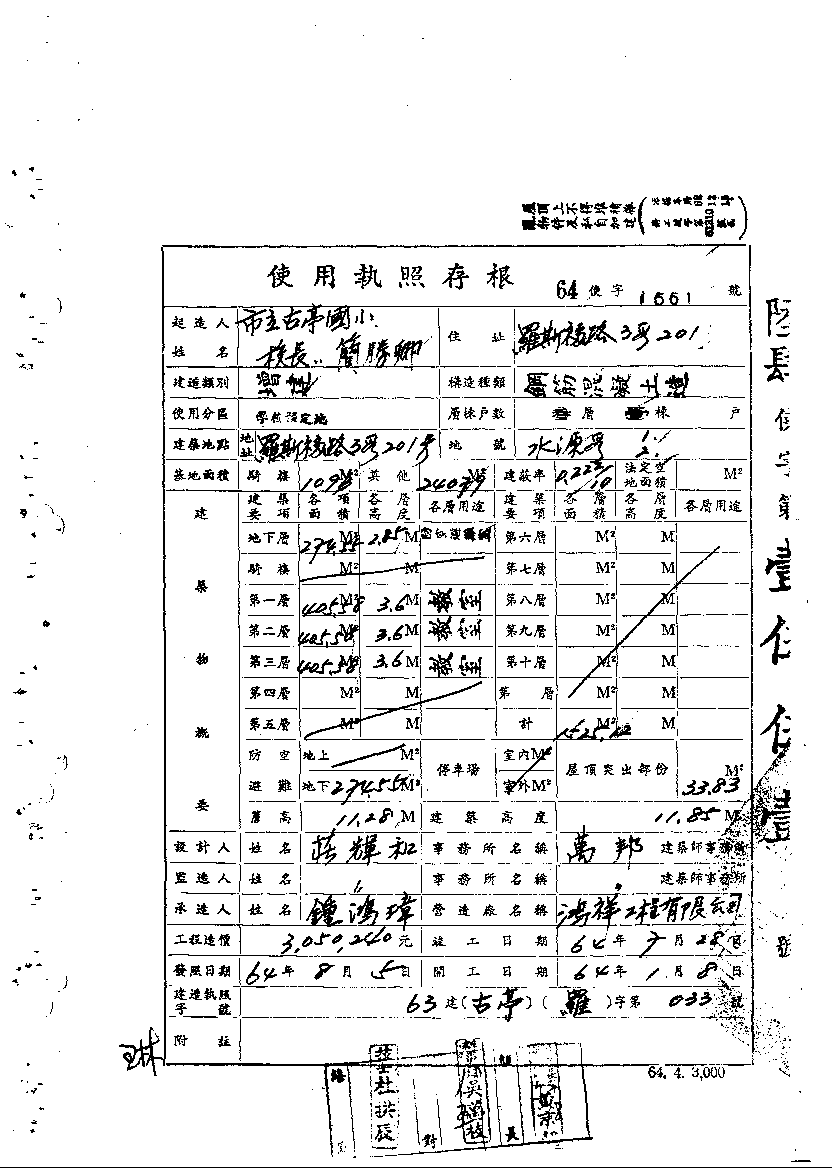 屋頂上不得堆積雜
物件及私自加建
使用執照存根 64 使字 1561 號
起造人姓名 市立古亭國小 校長 簡勝卿 住址 羅斯福路3段201
建造類別 增建 構造種類 鋼筋混凝土造
使用分區 學校預定地 層棟戶數 層 棟 戶
建築地點 地址 羅斯福路3段201號 地號 水源段
基地面積 騎樓 M² 其他 M² 建蔽率 法定空地面積 M²
建築物概要 建築要項 各項面積 各層高度 各層用途 建築要項 各層面積 各層高度 各層用途
地下層 274.55 M² 2.85 M 第六層 M² M
騎樓 M² M 第七層 M² M
第一層 405.58 M² 3.6 M 教室 第八層 M² M
第二層 405.58 M² 3.6 M 教室 第九層 M² M
第三層 405.58 M² 3.6 M 教室 第十層 M² M
第四層 M² M 第 層 M² M
第五層 M² M 計 M² M
防空避難 地上 M² 停車場 室內M² 屋頂突出部份 33.83 M²
地下 274.55 M² 室外M²
簷高 11.28 M 建築高度 11.85 M
設計人 姓名 輝和 事務所名稱 萬邦 建築師事務所
監造人 姓名 〃 事務所名稱 〃 建築師事務所
承造人 姓名 鍾鴻瑋 營造廠名稱 鴻祥工程有限公司
工程造價 3,050,240元 竣工日期 64年7月28日
發照日期 64年8月5日 開工日期 64年1月8日
建造執照字號 63建(古亭)(羅)字第033號
附註
64. 4. 3,000
陸肆使字第壹伍伍壹號
對
長